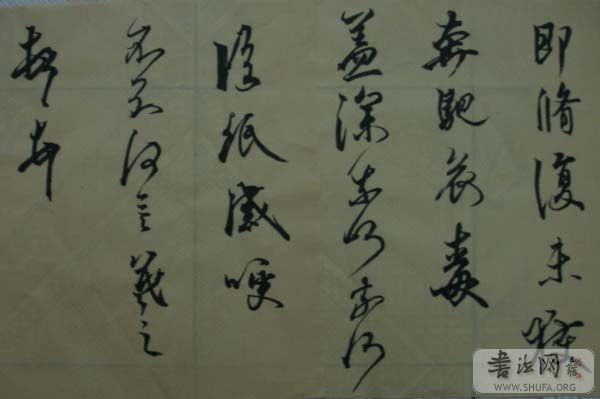 即脩復未獲
奔馳哀毒
益深奈何奈何
臨紙感哽
不知何言羲之
頓首
書法网
WWW.SHUFA.ORG